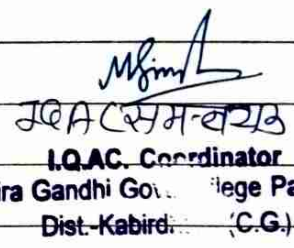 IQAC समन्वयक
I.Q.AC. Coordinator
ira Gandhi Gov. lege Pa
Dist.-Kabird. (C.G.)